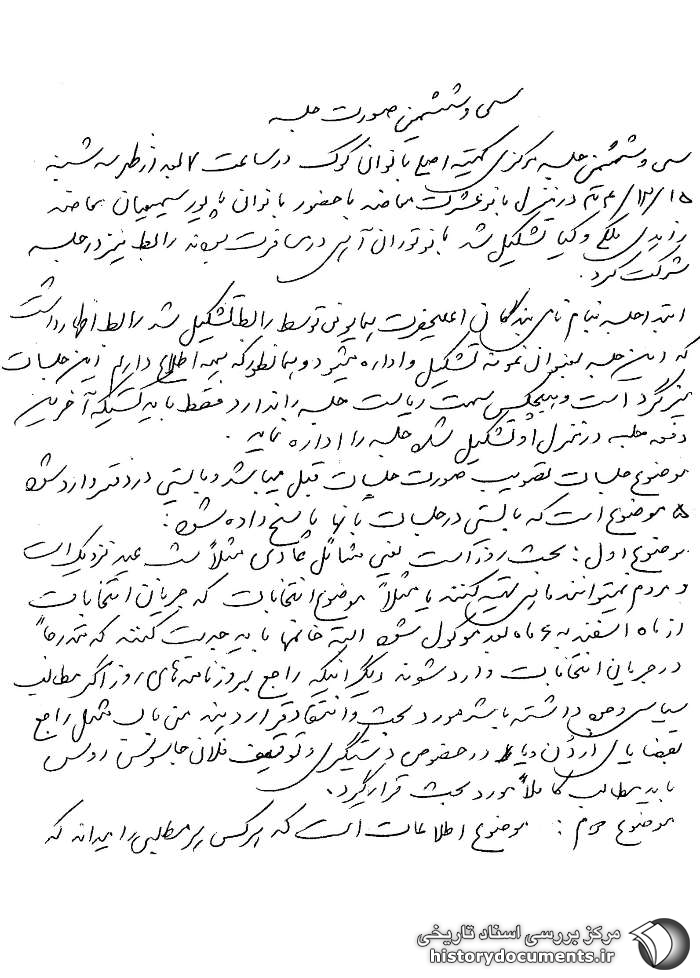 سی و ششمین صورت جلسه
سی و ششمین جلسه مرکزی کمیته اصلی بانوان کوک در ساعت ۷ بعد از ظهر سه شنبه
۱۵/۱۲/ در منزل بانو عشرت معاضد با حضور بانوان پورسمیعیان معاضد
ملکی و کیا تشکیل شد بانو توران در مسافرت بودند رابط نیز در جلسه
شرکت کرد.
ابتدا جلسه بنام نامی بندگان اعلیحضرت همایونی توسط رابط تشکیل شد رابط اظهار داشت
که این جلسه بعنوان نمونه تشکیل و اداره میشود و همانطور که همه اطلاع داریم این جلسات
میزگرد است و هیچکس سمت ریاست جلسه را ندارد فقط باید کسیکه آخرین
دفعه جلسه در منزل او تشکیل شده جلسه را اداره نماید.
موضوع جلسات تصویب صورت جلسات قبل میباشد و بایستی در دفتر وارد شود
۵ موضوع است که بایستی در جلسات بآنها پاسخ داده شود:
موضوع اول: بحث روز است یعنی مسائل عادی مثلاً شب عید نزدیک است
و مردم نمیتوانند ماهی تهیه کنند یا مثلاً موضوع انتخابات که جریان انتخابات
از ماه اسفند به ۶ ماه بعد موکول شده البته خانمها باید جدیت کنند که متدرجاً
در جریان انتخابات وارد شوند دیگر اینکه راجع بروزنامه‌های روز اگر مطالب
سیاسی وجود داشته باشد مورد بحث و انتقاد قرار دهند من باب مثل راجع
بقضایای اردن و یا در خصوص دستگیری و توقیف فلان جاسوس روس
باید مطالب کاملاً مورد بحث قرار گیرد.
موضوع دوم: موضوع اطلاعات است که هر کس هر مطلبی را میداند که
مرکز بررسی اسناد تاریخی
historydocuments.ir